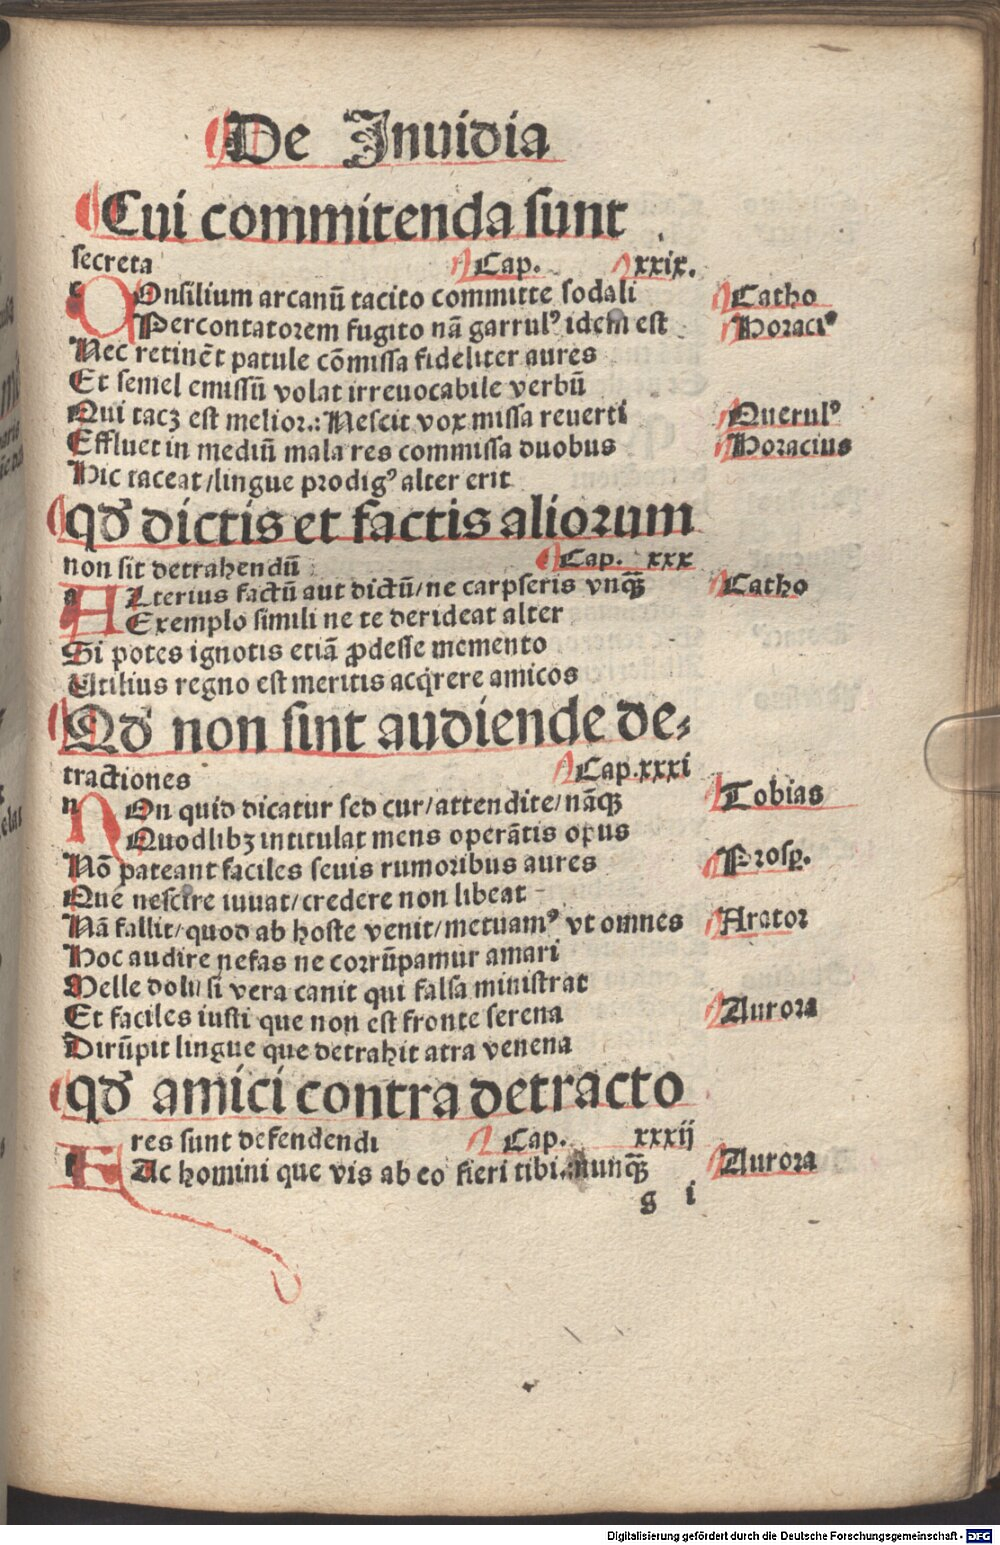 De Inuidia
Cui commitenda sunt
secreta Cap. xxix.
c Onsilium arcanū tacito committe sodali Catho
Percontatorem fugito nā garrulꝰ idem est Horaciꝰ
Nec retinēt patule cōmissa fideliter aures
Et semel emissū volat irreuocabile verbū
Qui tacꝫ est melior.: Nescit vox missa reuerti Querulꝰ
Effluet in mediū mala res commissa duobus Horacius
Hic taceat/lingue prodigꝰ alter erit
qđ dictis et factis aliorum
non sit detrahendū Cap. xxx
a Lterius factū aut dictū/ne carpseris vnqꝫ̄ Catho
Exemplo simili ne te derideat alter
Si potes ignotis etiā ꝓdesse memento
Utilius regno est meritis acq̇rere amicos
Qđ non sint audiende de⸗
tractiones Cap. xxxi
n On quid dicatur sed cur/attendite/nāqꝫ Tobias
Quodlibꝫ intitulat mens operātis opus
Nō pateant faciles seuis rumoribus aures Prosꝑ.
Que nescire iuuat/credere non libeat
Nā fallit/quod ab hoste venit/metuamꝰ vt omnes Arator
Hoc audire nefas ne corrūpamur amari
Melle doli/si vera canit qui falsa ministrat
Et faciles iusti que non est fronte serena Aurora
Dirūpit lingue que detrahit atra venena
qđ amici contra detracto
res sunt defendendi Cap. xxxij
f Ac homini que vis ab eo fieri tibi.:nunqꝫ̄ Aurora
g i
Digitalisierung gefördert durch die Deutsche Forschungsgemeinschaft - DFG